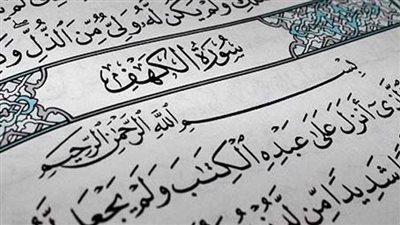 وَلَمْ يَكُن لَّهُ وَلِيٌّ مِّنَ الذُّلِّ
سُورَةُ الْكَهْفِ
بِسْمِ اللَّهِ الرَّحْمَٰنِ الرَّحِيمِ
أَنزَلَ عَلَىٰ عَبْدِهِ الْكِتَابَ وَلَمْ يَجْعَل
شَدِيدًا مِّن